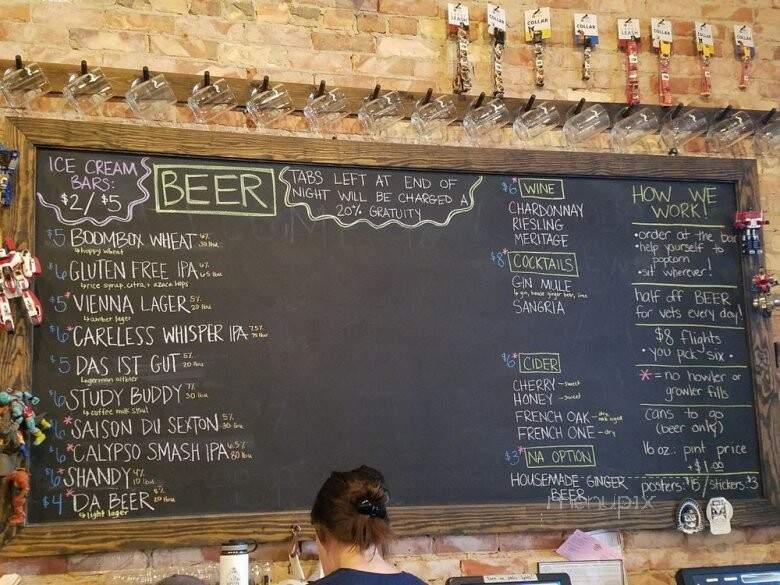 LEASH
COLLAR
COLLAR
COLLAR
LEASH
COLLAR
COLLAR
COLLAR
ICE CREAM
BARS:
$2/$5
BEER
TABS LEFT AT END OF
NIGHT WILL BE CHARGED A
20% GRATUITY
$5 BOOMBOX WHEAT
hoppy wheat
$6 GLUTEN FREE IPA
rice syrup, citra, + azaca hops
$5* VIENNA LAGER 5%
amber lager
$6* CARELESS WHISPER IPA 7.5%
$5 DAS IST GUT 5%
20 ibu
german altbier
$6 STUDY BUDDY 7%
30 ibu
coffee milk stout
$6* SAISON DU SEXTON 5%
30 ibu
$6* CALYPSO SMASH IPA 6.5%
80 ibu
$6* SHANDY 4%
10 ibu
$4* DA BEER
20 ibu
light lager
$6* WINE
CHARDONNAY
RIESLING
MERITAGE
$8* COCKTAILS
GIN MULE
gin, house ginger beer, lime
SANGRIA
$6* CIDER
CHERRY - sweet
HONEY - sweet
FRENCH OAK - dry,
FRENCH ONE - dry
$3* NA OPTION
HOUSEMADE GINGER
BEER
HOW WE
WORK!
• order at the bar
• help yourself to
popcorn
• sit wherever!
half off BEER
for vets every day!
$8 flights
• you pick six •
* = no howler or
growler fills
cans to go
(beer only)
16 oz: pint price
+$1.00
posters: $15/stickers: $3
menupix